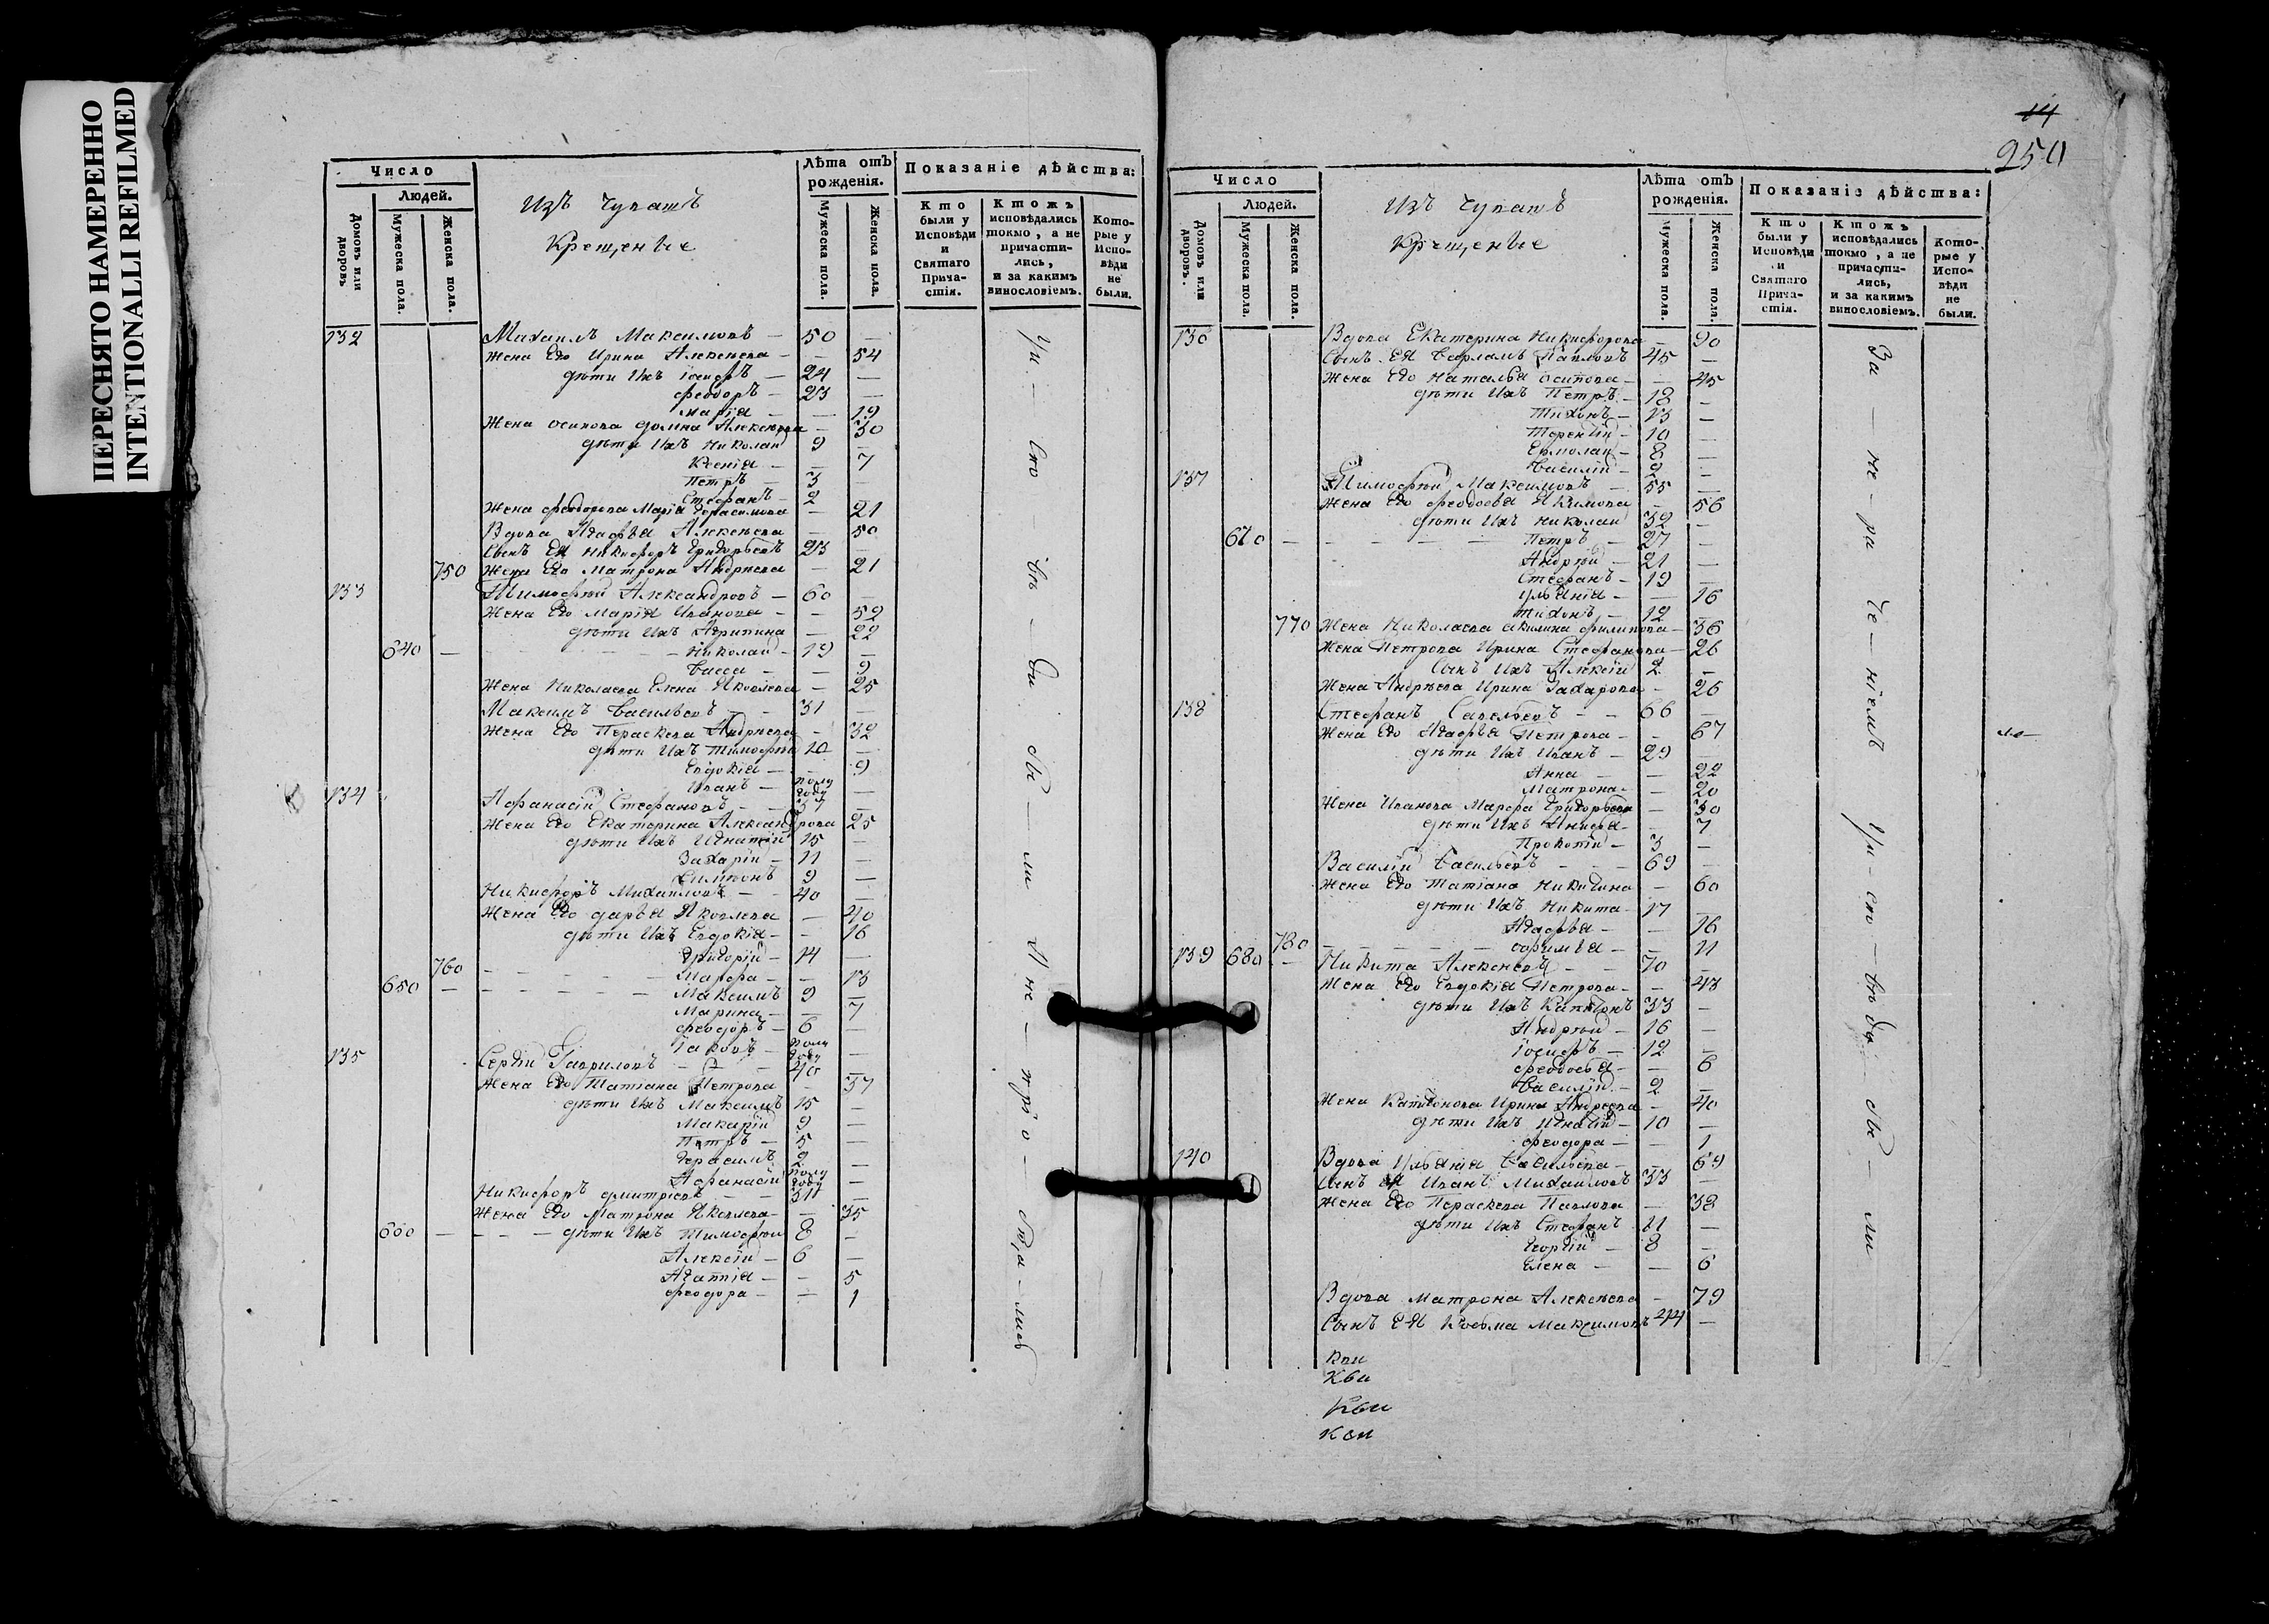 ПЕРЕСНЯТО НАМЕРЕННО
INTENTIONALLI REFILMED
Число
Людей.
Домовъ или дворовъ
Мужеска пола.
Женска пола.
Изъ Чувашъ
Крещеные
Лѣта отъ рожденія.
Мужеска пола.
Женска пола.
Показаніе дѣйства:
Кто были у Исповѣди и Святаго Прича-стія.
Ктожъ исповѣдались токмо, а не причасти-лись, и за какимъ винословіемъ.
Кото-рые у Испо-вѣди не были.
132 Михаилъ Максимовъ — 50 —
Жена Его Ирина Алексѣева — — 54
дѣти Ихъ Іосифъ — 24 —
Феодоръ — 23 —
Марія — — 19
Жена Осипова Домна Алексѣева — 30
дѣти Ихъ Николай 9 —
Ксенія — — 7
Петръ — 3 —
Стефанъ — 2 —
Жена Феодорова Марія Герасимова — 21
Вдова Агафья Алексѣева — 50
Сынъ Ея Никифоръ Григорьевъ 23 —
750 Жена Его Матрона Андреева — 21
133 Тимофѣй Александровъ — 60 —
Жена Его Марія Иванова — — 52
дѣти Ихъ Агрипина — 22
640 — Николай — 19 —
Васса — — 9
Жена Николаева Елена Яковлева — 25
Максимъ Васильевъ — — 31 —
Жена Его Параскева Андреева — 32
дѣти Ихъ Тимофѣй 10 —
Евдокія — — 9
Иванъ — полу году —
134 Афанасій Стефановъ — — 37 —
Жена Его Екатерина Александрова 25
дѣти Ихъ Игнатій 15 —
Захарій — 11 —
Симеонъ 9 —
Никифоръ Михайловъ — — 40 —
Жена Его Дарья Яковлева — 40
дѣти Ихъ Евдокія — — 16
Григорій — 14 —
760 — Марфа — — 13
650 — Максимъ 9 —
Марина — — 7
Феодоръ — 6 —
Іаковъ — полу году —
135 Сергій Гавриловъ — — 40 —
Жена Его Татіана Петрова — 37
дѣти Ихъ Максимъ 15 —
Макарій 9 —
Петръ — 5 —
Герасимъ 2 —
Афанасій полу году —
Никифоръ Дмитріевъ — — 31 —
Жена Его Матрона Яковлева — — 35
660 — дѣти Ихъ Тимофѣй 8 —
Алексій — 6 —
Агапія — — 5
Феодора — — 1
14
250
Число
Людей.
Домовъ или дворовъ.
Мужеска пола.
Женска пола.
Изъ Чувашъ
Крещеные
Лѣта отъ рожденія.
Мужеска пола.
Женска пола.
Показаніе дѣйства:
Кто были у Исповѣди и Святаго Прича-стія.
Ктожъ исповѣдались токмо, а не причасти-лись, и за какимъ винословіемъ.
Кото-рые у Испо-вѣди не были.
136 Вдова Екатерина Никифорова — 90
Сынъ Ея Варламъ Павловъ 45 —
Жена Его Наталья Осипова — — 45
дѣти Ихъ Петръ — 18 —
Тихонъ — 13 —
Терентій — 10 —
Ермолай — 8 —
Василій — 2 —
137 Тимофѣй Максимовъ — 55 —
Жена Его Феодосья Якимова — 56
дѣти Ихъ Николай 32 —
670 — Петръ — 27 —
Андрѣй — 21 —
Стефанъ — 19 —
Ульянія — — 16
Тихонъ — 12 —
770 Жена Николаева Акилина Филипова — 36
Жена Петрова Ирина Стефанова — 26
Сынъ Ихъ Алексій 2 —
Жена Андрѣева Ирина Захарова — 26
138 Стефанъ Савельевъ — — 66 —
Жена Его Агафья Петрова — — 67
дѣти Ихъ Иванъ — 29 —
Анна — — 22
Матрона — — 20
Жена Иванова Марфа Григорьева — 30
дѣти Ихъ Анисья — — 7
Прокопій — 3 —
Василій Васильевъ — — 69 —
Жена Его Татіана Никитина — 60
дѣти Ихъ Никита — 17 —
Агафья — — 16
780 — Софимья — — 11
139 680 — Никита Алексѣевъ — — 70 —
Жена Его Евдокія Петрова — — 43
дѣти Ихъ Капитонъ 33 —
Андрѣй — 16 —
Іосифъ — 12 —
Феодосья — — 6
Василій — 2 —
Жена Капитонова Ирина Андреева — 40
дѣти Ихъ Игнатій — 10 —
Феодора — — 1
140 Вдова Ульянія Васильева — — 69
Сынъ Ея Иванъ Михайловъ 33 —
Жена Его Параскева Павлова — 38
дѣти Ихъ Стефанъ 11 —
Георгій — 8 —
Елена — — 6
Вдова Матрона Алексѣева — 79
Сынъ Ея Козьма Максимовъ 44 —